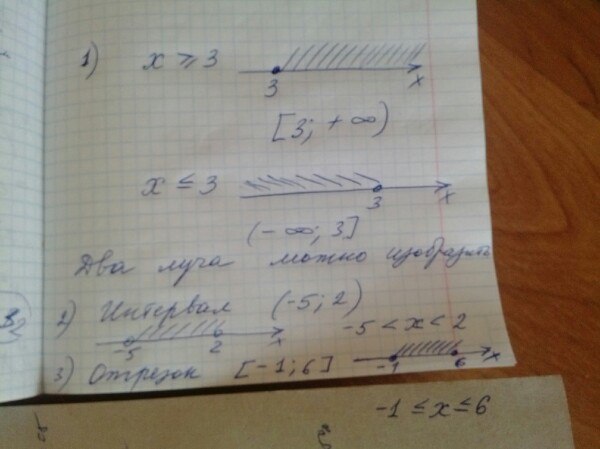 1) x ⩾ 3
3 x
[3; + ∞)
x ≤ 3
3 x
(- ∞; 3]
Два луча можно изобразить
2) Интервал (-5; 2)
-5 2 x -5 < x < 2
3) Отрезок [-1; 6] -1 6 x
-1 ≤ x ≤ 6